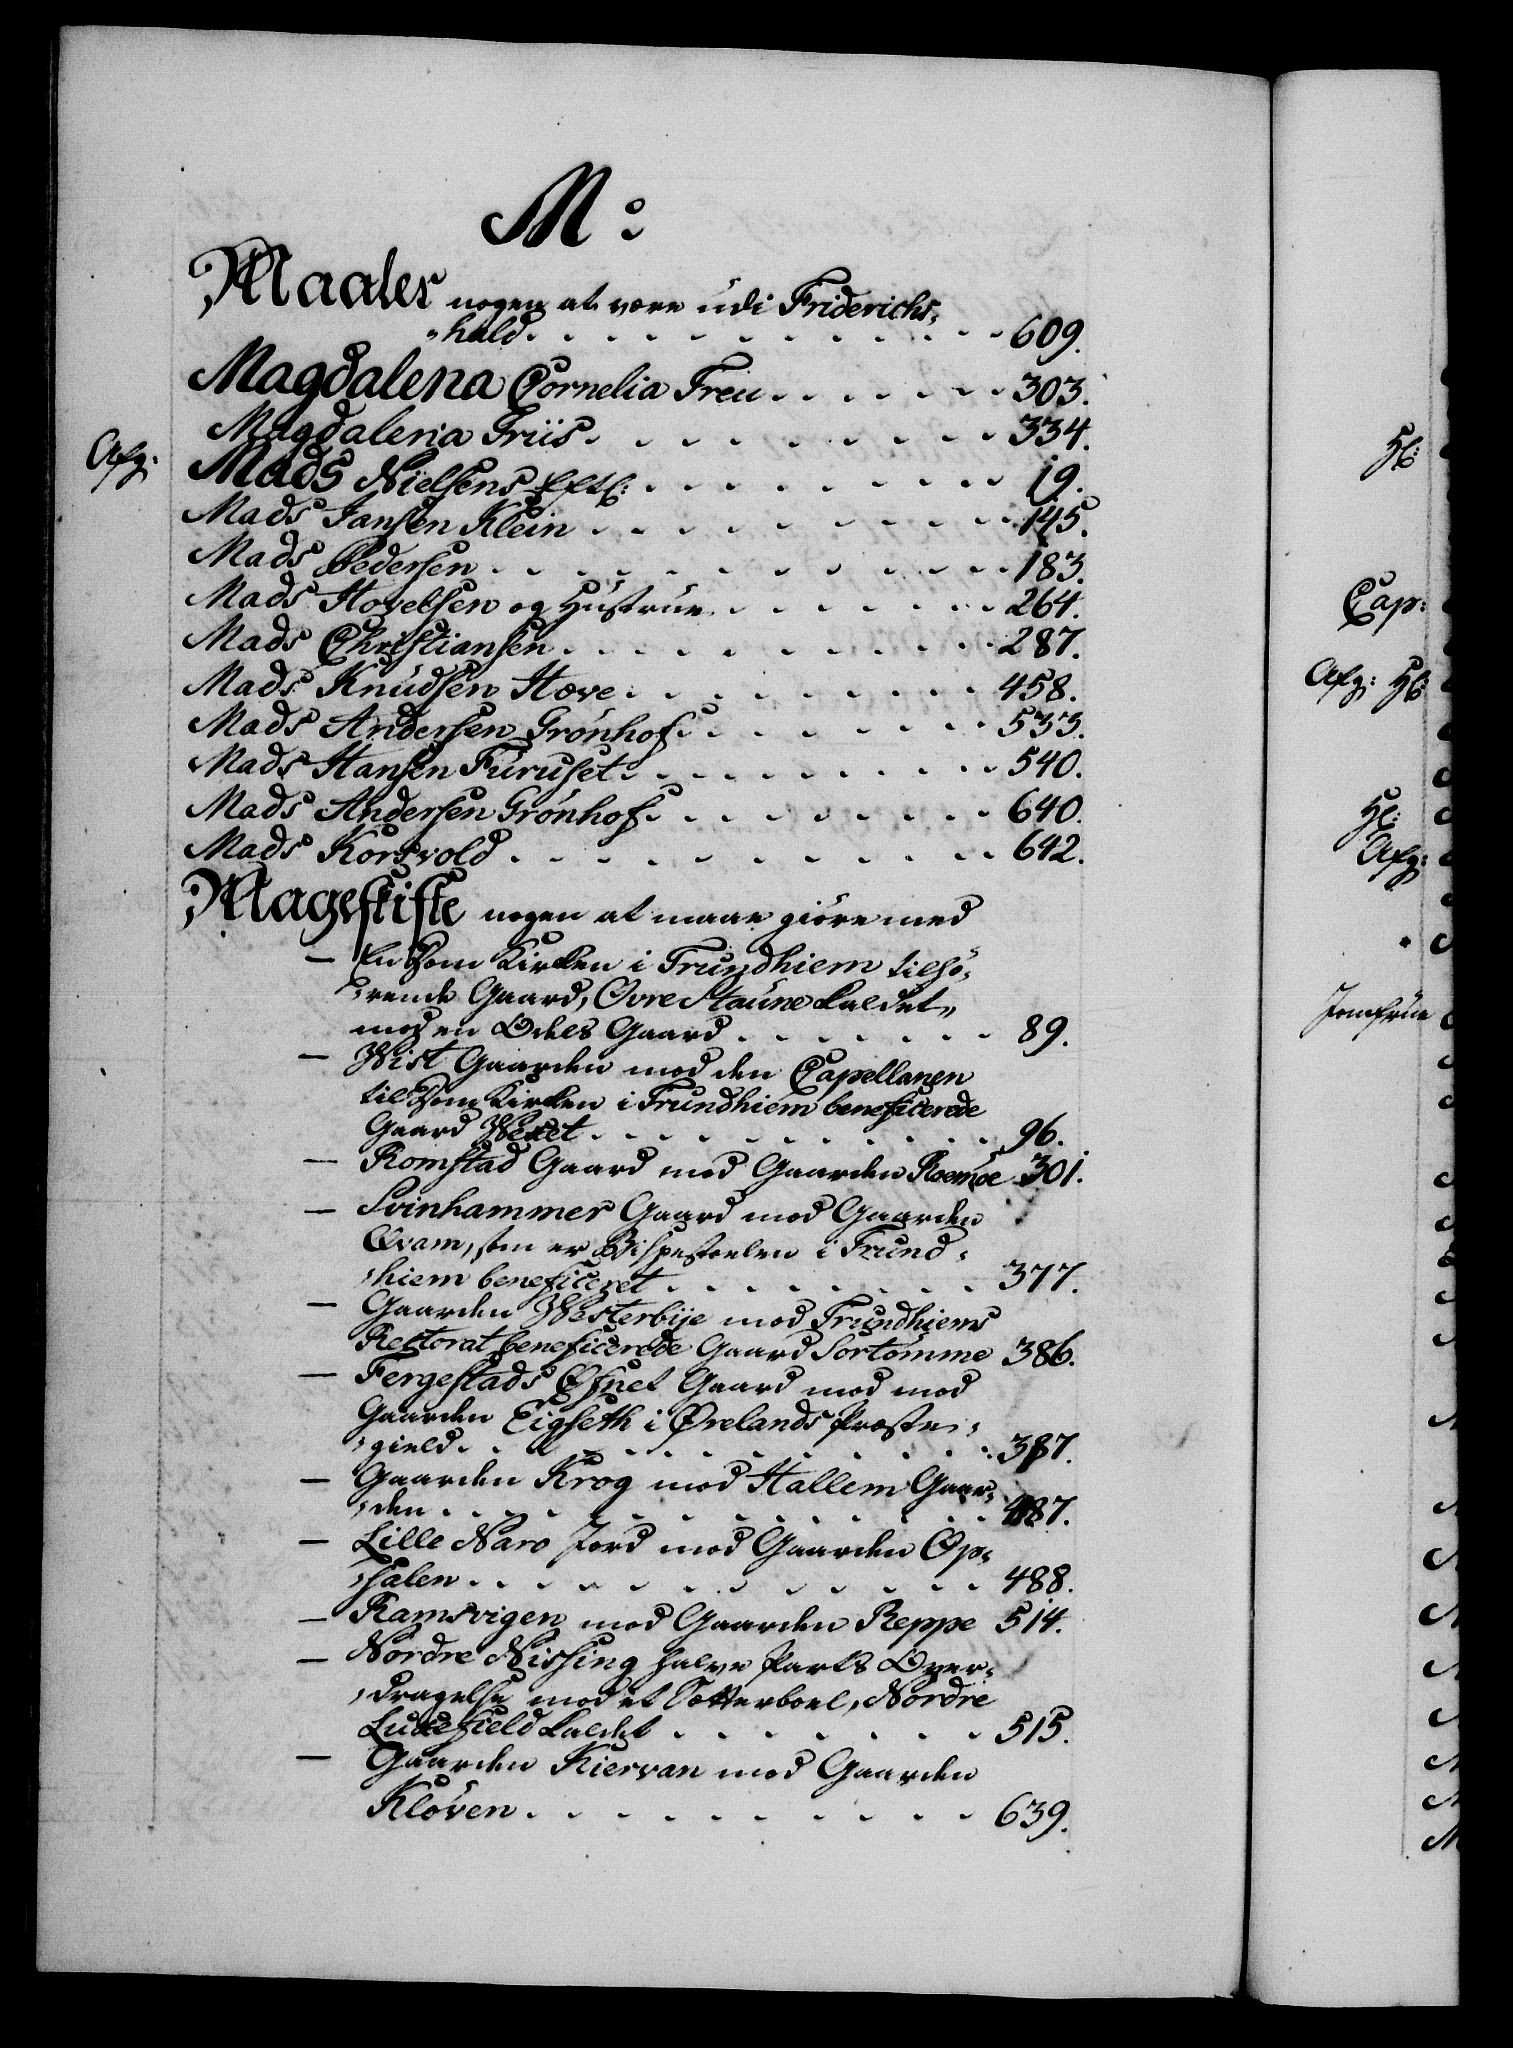 M:
Maaler nogen at være udi Friderichs,
"hald. 609.
Magdalena Cornelia Freu. 303.
Magdalena Friis. 334.
Afg: Mads Nielsens Eftl: 19.
Mads Jansen Klein 145.
Mads Pedersen 183.
Mads Hovelsen og Hustrue. 264.
Mads Christiansen. 287.
Mads Knudsen Hove. 458.
Mads Andersen Grønhof. 533.
Mads Hansen Furuset. 540.
Mads Andersen Grønhof. 640.
Mads Korsvold 642.
Mageskifte nogen at maae giøre med
— En Dom Kirken i Trundhiem tilhø,
"rende Gaard, Øvre Staune kaldet,
mod en Odels Gaard 89.
— Wist Gaarden mod den Capellanen
til Dom Kirken i Trundhiem beneficerede
Gaard Weret 96.
— Romstad Gaard mod Gaarden Roemoe 301.
— Svinhammer Gaard mod Gaarden
Qvam, som er Bispestoelen i Trund,
"hiem beneficeret 377.
— Gaarden Westerbije mod Trundhiems
Rectorat beneficerede Gaard Sortømme 386.
— Fergestads Øfnet Gaard mod mod
Gaarden Eigseth i Ørelands Præste,
"gield. 387.
— Gaarden Krog mod Hallem Gaar,
"den 487.
— Lille Naro Jord mod Gaarden Op,
"halen 488.
— Ramsvigen mod Gaarden Reppe 514.
— Nordre Nissing halve Parts Over,
"dragelse mod et Sætterboel, Nordre
Lutefield kaldet 515.
— Gaarden Kiervan mod Gaarden
Kløven. 639.
Hl:
Cap:
Afg: Hl:
Hl:
Afg:
Jomfrue